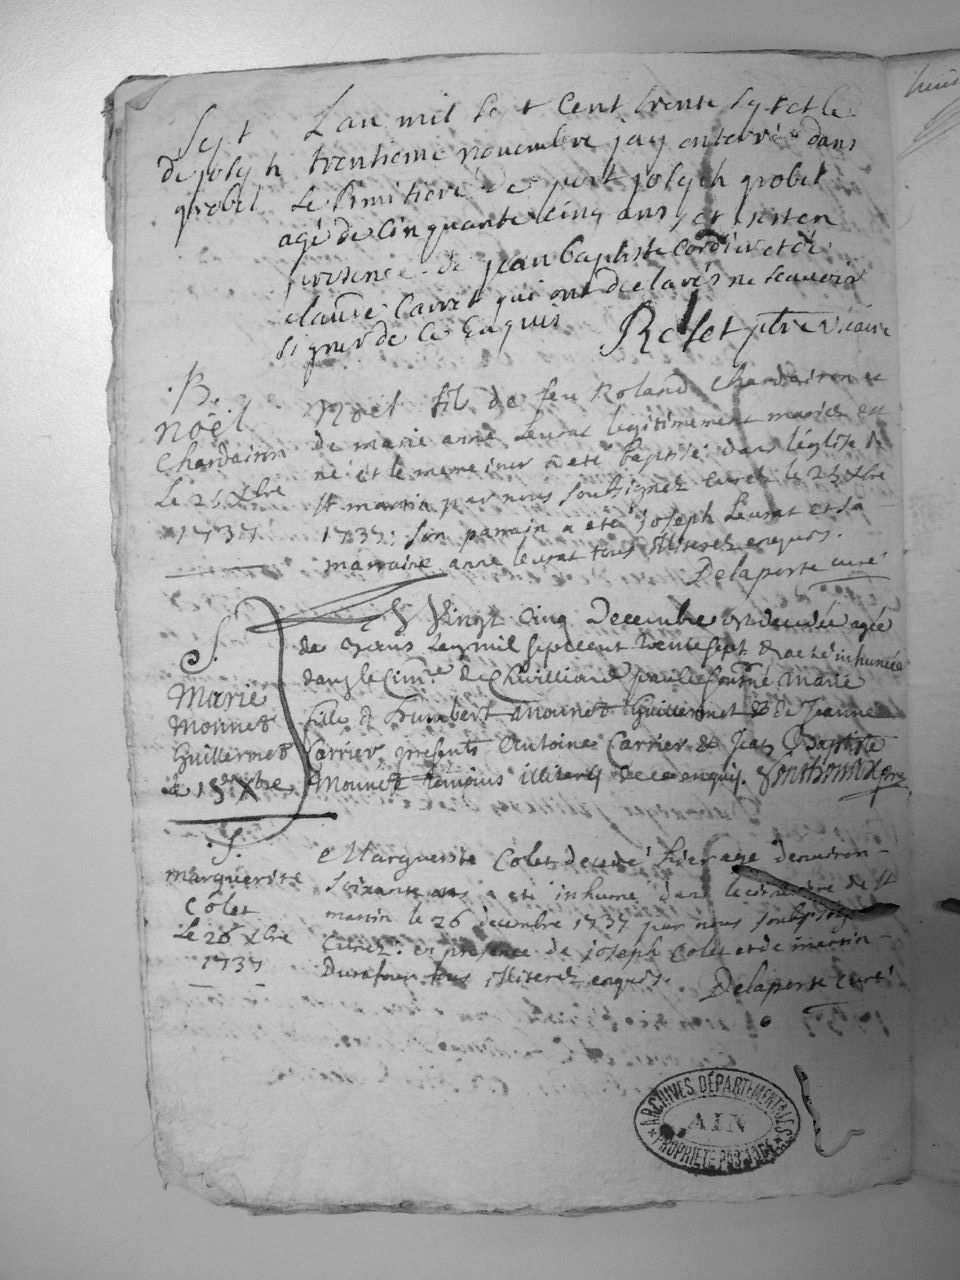 Sept
de joseph
grobel
L'an mil sept Cent trente sept et le
trentieme novembre jay enterré dans
Le Cimitiere de joseph grobel
agé de Cinquante cinq ans et
presence de jean baptiste Cordier et de
claude Carret qui ont declarés ne scauoir
signer de ce Enquis Rolet ptre vicaire
B.
noël
Chardairon
Le 25 Xbre
1737
Noel fils de feu Roland Chardairon et
de marie anne Leurat legitimement mariez est
né et le meme iour a eté baptisé dans l'église de
st martin par nous soussignez curez le 25 Xbre
1737: son parrain a eté joseph Leurat et sa
marraine anne leurat tous illiterez enquis.
Delaporte curé
S.
Marie
Monnet
Guillermet
Le Vingt Cinq Decembre est decedée agée
de mil septcent trente sept & a eté inhumée
dans le Cim.re de Marie
fille d'humbert Monnet Guillermet & de Jeanne
Carrier, presents Antoine Carrier & Jean Baptiste
Monnet temoins illiterés de ce enquis.
S.
marguerite
Colet
Le 26 Xbre
1737
Marguerite Colet decedé hier agé denuiron
soixante ans a eté inhumé dans le cimitiere de st
martin le 26 decembre 1737 par nous soussigné
Curez: en presence de joseph Colet et de martin
tous illiterez enquis. Delaporte curé
ARCHIVES DÉPARTEMENTALES
AIN
PROPRIETE PUBLIQUE